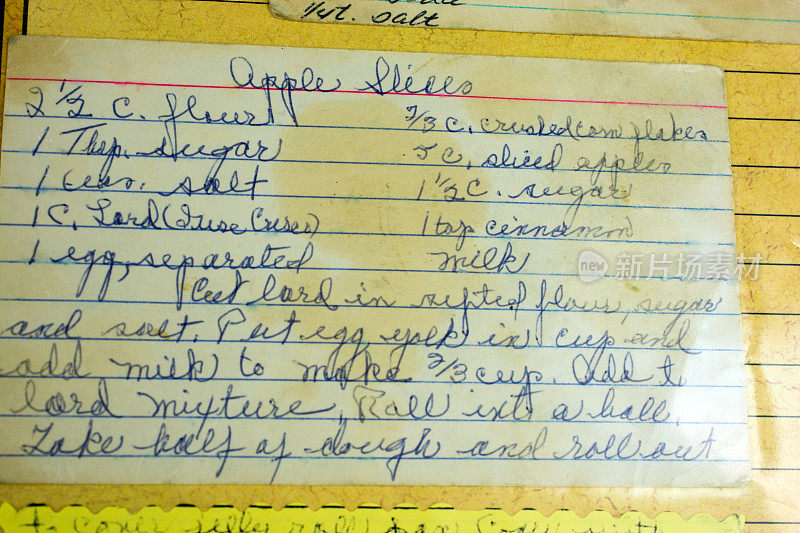 1/4 t. salt
Apple Slices
2 1/2 c. flour 2/3 c. crushed corn flakes
1 Tbsp. sugar 5 c. sliced apples
1 teas. salt 1 1/2 c. sugar
1 c. Lard (I use Crisco) 1 tsp cinnamon
1 egg, separated milk
Cut lard in sifted flour, sugar
and salt. Put egg yolk in cup and
add milk to make 2/3 cup. Add to
lard mixture. Roll into a ball.
Take half of dough and roll out
to cover jelly roll pan
new 新片场 iStock